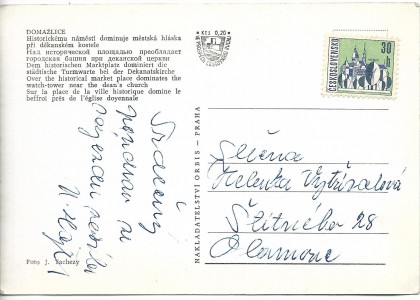 DOMAŽLICE
Historickému náměstí dominuje městská hláska
při děkanském kostele
Над исторической площадью преобладает
городская башня при деканской церкви
Dem historischen Marktplatz dominiert die
städtische Turmwarte bei der Dekanatskirche
Over the historical market place dominates the
watch-tower near the dean's church
Sur la place de la ville historique domine le
beffroi près de l'église doyennale
Srdečný
pozdrav ze
zájezdu
Foto J. Tachezy
NAKLADATELSTVÍ ORBIS - PRAHA
Kčs 0,20
ČESKOSLOVENSKO
30
h
Slečna
Helenka Vytřísalová
Štítného 28
Olomouc